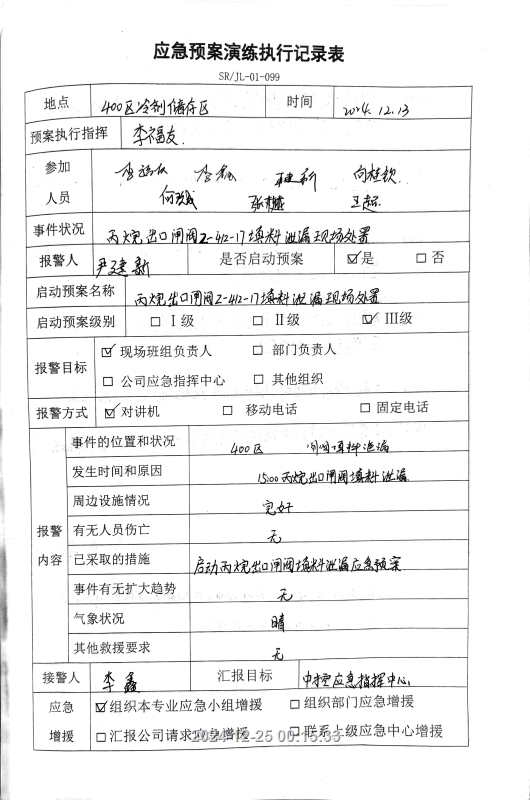 应急预案演练执行记录表
SR/JL-01-099
地点 400区冷剂储存区 时间 2024.12.13
预案执行指挥 李福友.
参加人员 李福友 李鑫 向桂钦
何战城 王超
事件状况 丙烷出口闸阀2-412-17填料泄漏现场处置
报警人 尹建新 是否启动预案 ☑是 □否
启动预案名称 丙烷出口闸阀2-412-17填料泄漏现场处置
启动预案级别 □Ⅰ级 □Ⅱ级 ☑Ⅲ级
报警目标 ☑现场班组负责人 □部门负责人
□公司应急指挥中心 □其他组织
报警方式 ☑对讲机 □移动电话 □固定电话
报警内容 事件的位置和状况 400区 闸阀填料泄漏
发生时间和原因 15:00丙烷出口闸阀填料泄漏
周边设施情况 完好
有无人员伤亡 无
已采取的措施 启动丙烷出口闸阀填料泄漏应急预案
事件有无扩大趋势 无
气象状况 晴
其他救援要求 无
接警人 李鑫 汇报目标 中控应急指挥中心
应急增援 ☑组织本专业应急小组增援 □组织部门应急增援
□汇报公司请求应急增援 □联系上级应急中心增援
2024-12-25 00:15:33